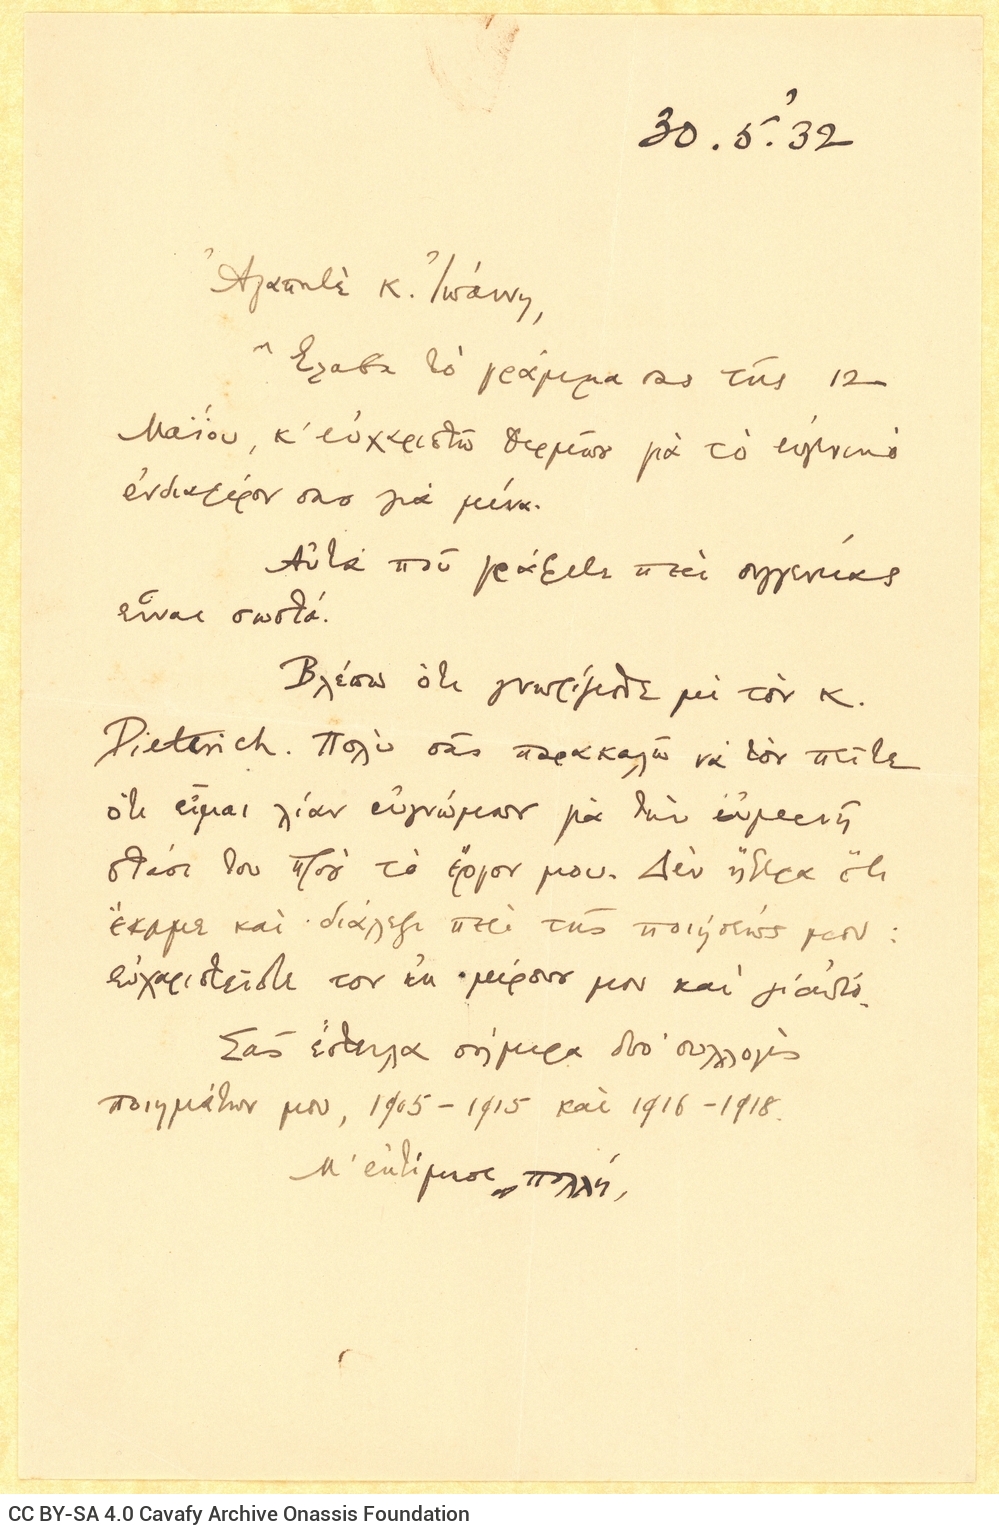 30.5.'32
Ἀγαπητὲ κ. Ἰωάννη,
Ἔλαβα τὸ γράμμα σας τῆς 12
Μαΐου, κ' εὐχαριστῶ θερμῶς γιὰ τὸ εὐγενικὸ
ἐνδιαφέρον σας γιὰ μένα.
Αὐτὰ ποῦ γράφετε περὶ συγγενείας
εἶναι σωστά.
Βλέπω ὅτι γνωρίζεσθε μὲ τὸν κ.
Dieterich. Πολὺ σᾶς παρακαλῶ νὰ τὸν πεῖτε
ὅτι εἶμαι λίαν εὐγνώμων γιὰ τὴν εὐμενῆ
στάσι του πρὸς τὸ ἔργον μου. Δὲν ἤξερα ὅτι
ἔκαμε καὶ διάλεξι περὶ τῆς ποιήσεώς μου:
εὐχαριστεῖστε τον ἐκ μέρους μου καὶ γι' αὐτό.
Σᾶς ἔστειλα σήμερα δυὸ συλλογὲς
ποιημάτων μου, 1905-1915 καὶ 1916-1918.
Μ' ἐκτίμησι πολλή,
CC BY-SA 4.0 Cavafy Archive Onassis Foundation